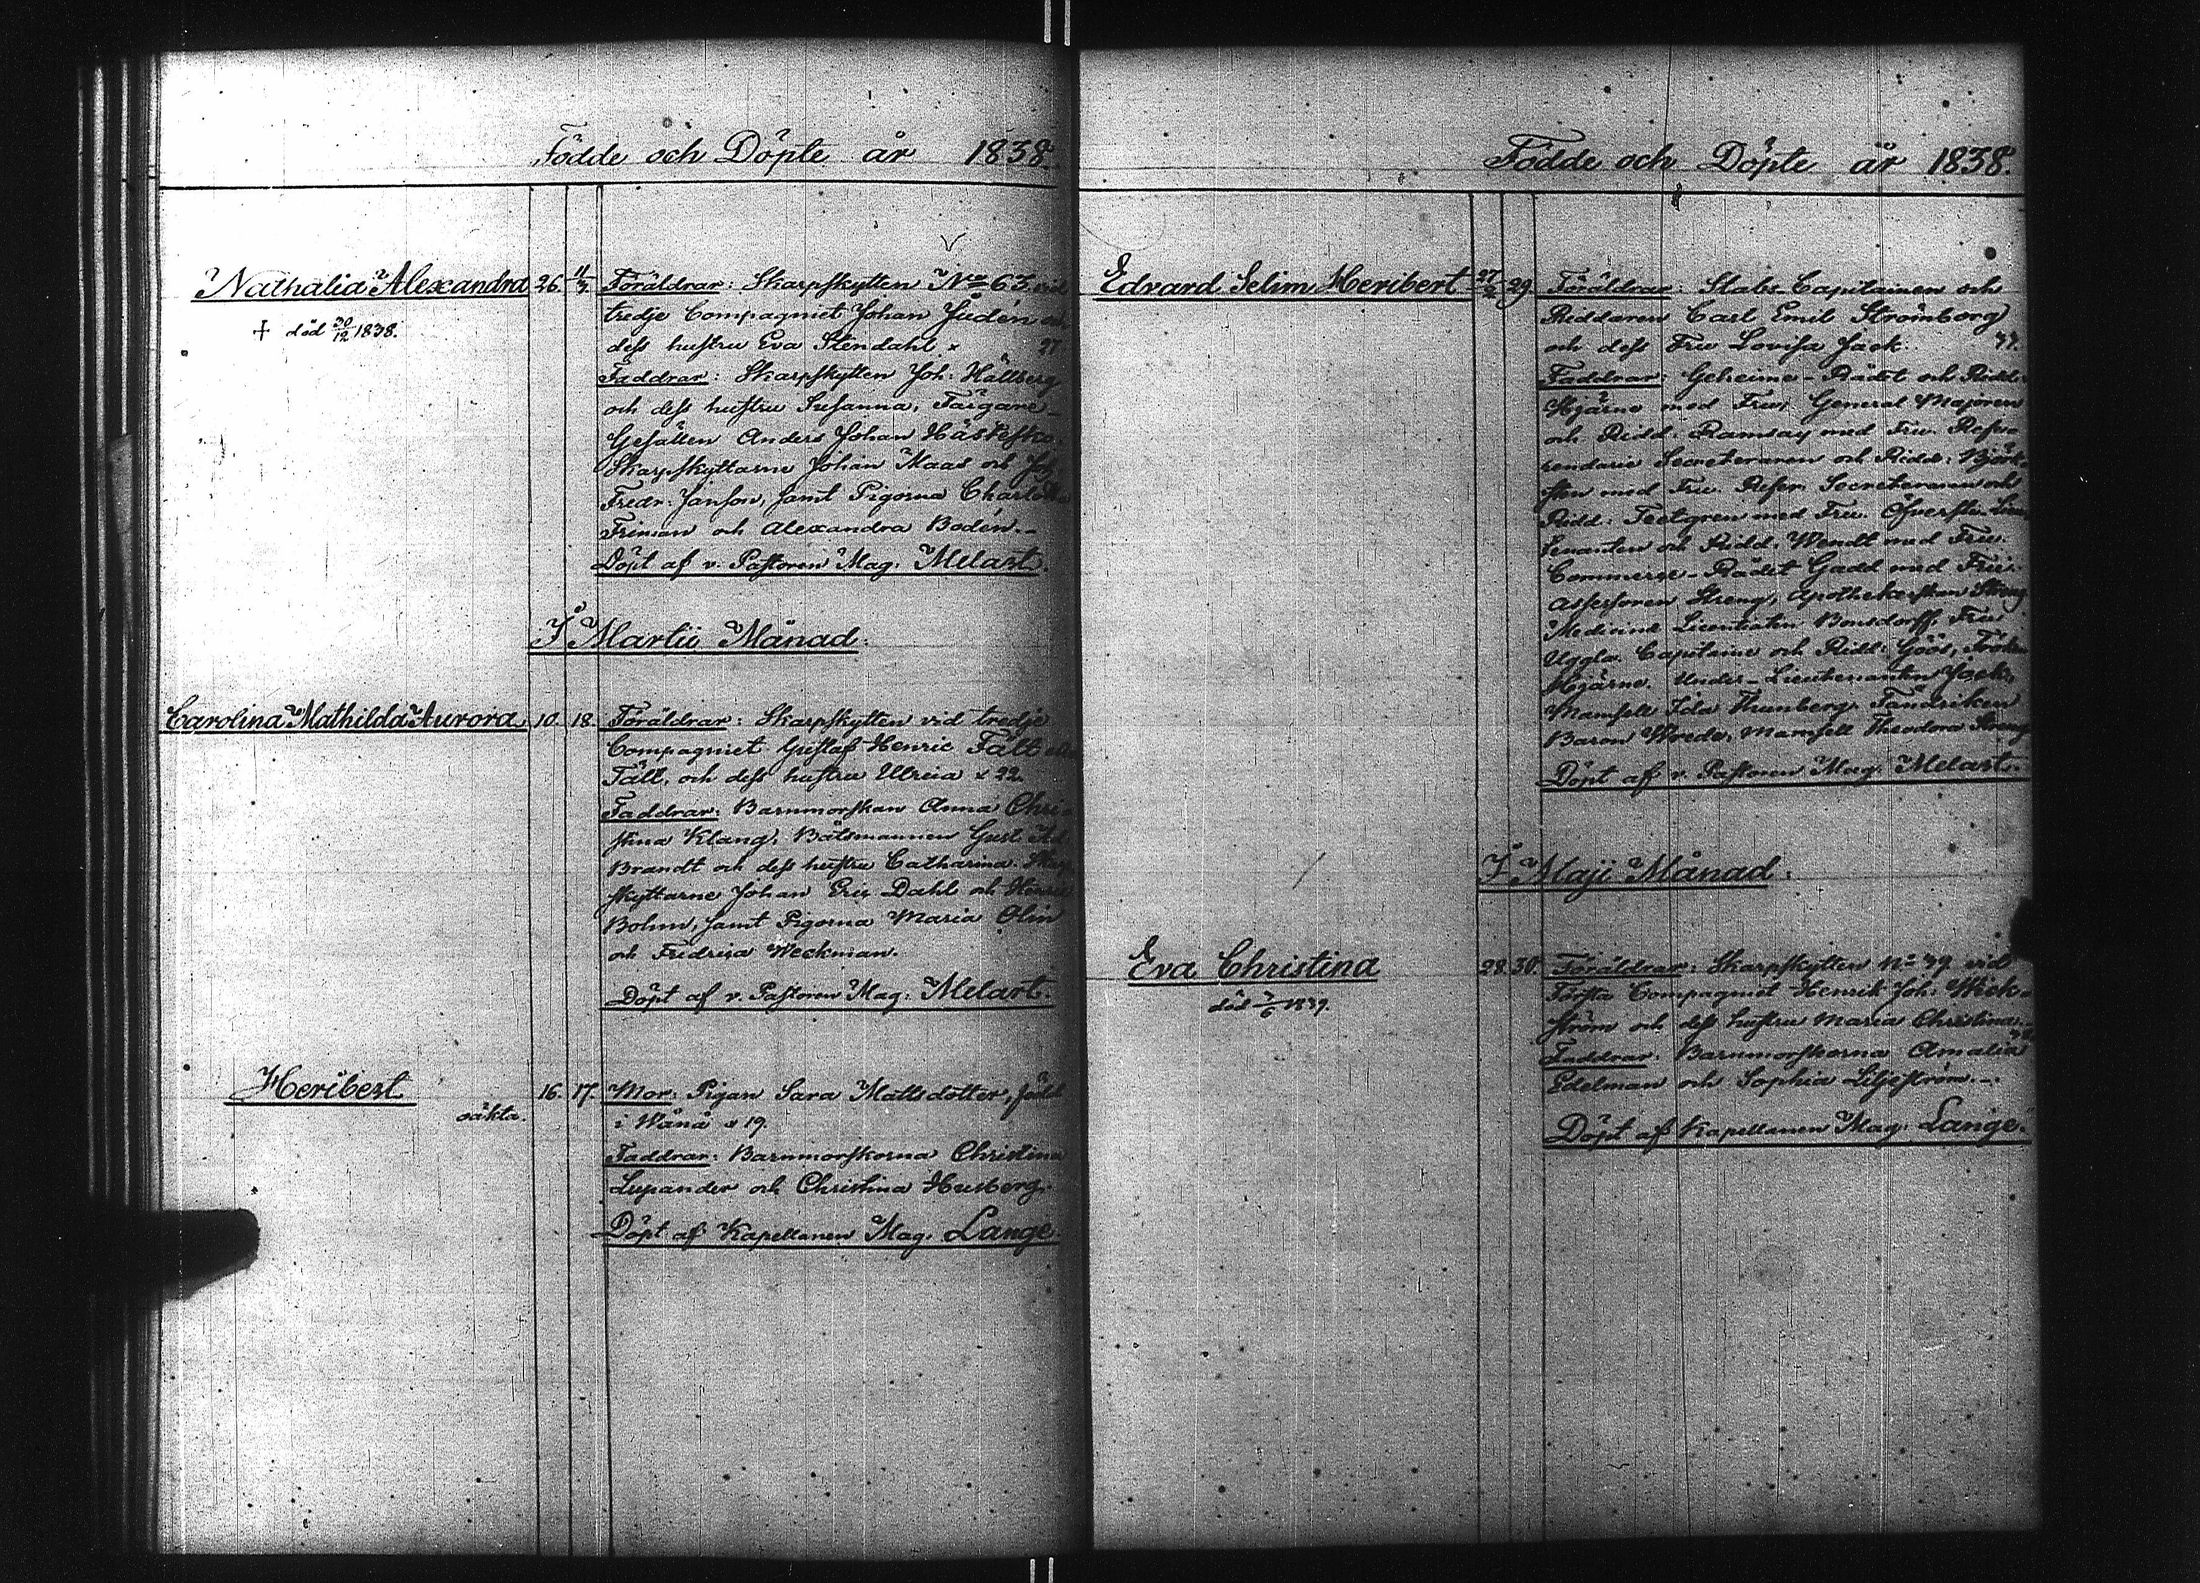 Födde och Döpte år 1838.
Nathalia Alexandra 26 11/3 Föräldrar: Skarpskytten No 63 vid
+ död 30/12 1838.
tredje Compagniet Johan Judén
dess hustru Eva Stendahl x 27
Faddrar: Skarpskytten Joh: Hällberg
och dess hustru Susanna, Färgare-
Gesällen Anders Johan
Skarpskyttarne Johan Maas och Joh
Fredr. Janson, samt Pigorna Charlotta
Friman och Alexandra Bodén.-
Döpt af v. Pastoren Mag. Melart.
I Martii Månad.
Carolina Mathilda Aurora 10. 18. Föräldrar: Skarpskytten vid tredje
Compagniet Gustaf Henric Fält
Täll, och dess hustru Ulrica x 22.
Faddrar: Barnmorskan Anna Chri-
stina Klang, Båtsmannen Gust. Ad.
Brandt och dess hustru Catharina. Skarp
skyttarne Johan Eric Dahl och Henric
Bohm, samt Pigorna Maria Olin
och Fredrica Weckman.
Döpt af v. Pastoren Mag: Melart.
Heribert 16. 17. Mor: Pigan Sara Mattsdotter, född
oäkta.
i Wånå x 19.
Faddrar: Barnmorskorna Christina
Lupander och Christina Husberg.
Döpt af Kapellanen Mag. Lange
Födde och Döpte år 1838.
Edvard Selim Heribert 27/2 29. Föräldrar: Stabs-Capitainen och
Riddaren Carl Emil Strömborg
och dess Fru Lovisa Jack.
Faddrar: Geheime-Rådet och Ridd.
Hjärne med Fru. General Majoren
och Ridd. Ramsay med Fru. Refe-
rendarie Secreteraren och Ridd:
sten med Fru. Refer. Secreteraren och
Ridd: Teetgren med Fru. Öfverste Lieu-
tenanten och Ridd. Wendt med Fru.
Commerse-Rådet Gadd med Fru.
Assessoren Streng, Apothekerskan Streng
Medicine Licentiaten Bonsdorff, Fru
Uggla. Capitaine och Ridd: Göös, Fröken
Hjärne. Under-Lieutenanten Jack,
Mamsell Ida Thunberg. Fändriken
Baron Wrede, Mamsell Theodora Streng
Döpt af v. Pastoren Mag. Melart.
I Maji Månad.
Eva Christina 28. 30. Föräldrar: Skarpskytten No 49 vid
död 1839.
Första Compagniet Henrik Joh. Wick-
ström och dess hustru Maria Christina.
Faddrar: Barnmorskorna Amalia
Edelman och Sophia Liljeström.-
Döpt af Kapellanen Mag. Lange.